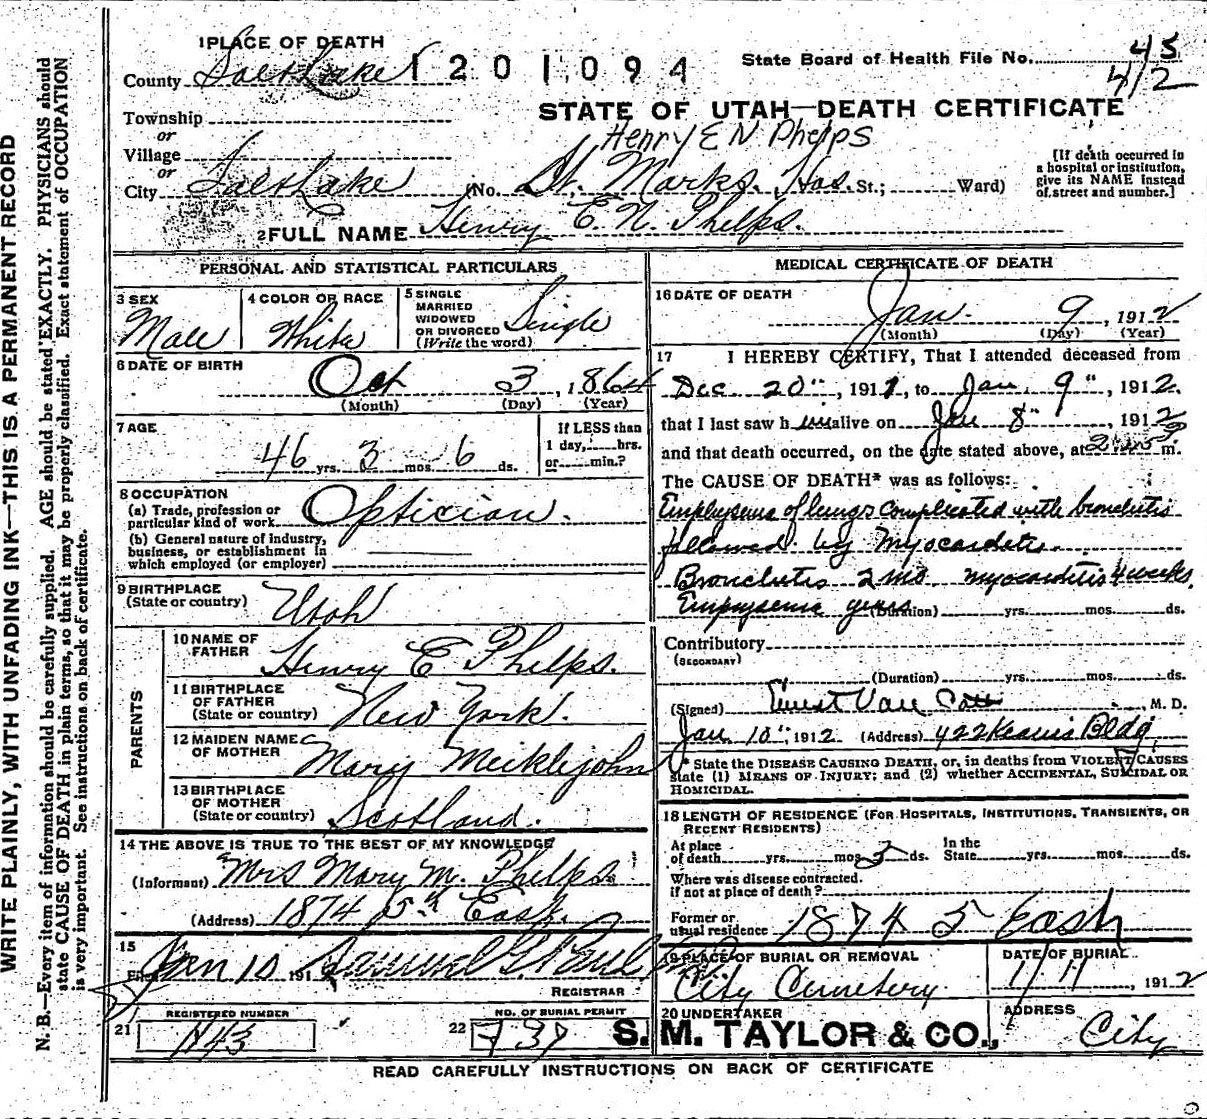 WRITE PLAINLY, WITH UNFADING INK—THIS IS A PERMANENT RECORD
N. B.—Every item of information should be carefully supplied. AGE should be stated EXACTLY. PHYSICIANS should
state CAUSE OF DEATH in plain terms, so that it may be properly classified. Exact statement of OCCUPATION
is very important. See instructions on back of certificate.
1 PLACE OF DEATH
County Salt Lake
1201094
State Board of Health File No. 45
412
STATE OF UTAH—DEATH CERTIFICATE
Township
or
Village
or
City Salt Lake (No. St. Marks Hos. St.; Ward)
Henry E N Phelps
[If death occurred in
a hospital or institution,
give its NAME instead
of street and number.]
2 FULL NAME Henry E. N. Phelps.
PERSONAL AND STATISTICAL PARTICULARS
3 SEX
Male
4 COLOR OR RACE
White
5 SINGLE
MARRIED
WIDOWED
OR DIVORCED
(Write the word)
Single
6 DATE OF BIRTH
Oct 3, 1864
(Month) (Day) (Year)
7 AGE
46 yrs. 3 mos. 6 ds.
If LESS than
1 day, hrs.
or min.?
8 OCCUPATION
(a) Trade, profession or
particular kind of work
Optician.
(b) General nature of industry,
business, or establishment in
which employed (or employer)
9 BIRTHPLACE
(State or country)
Utah
PARENTS
10 NAME OF
FATHER
Henry E Phelps.
11 BIRTHPLACE
OF FATHER
(State or country)
New York.
12 MAIDEN NAME
OF MOTHER
Mary Meiklejohn
13 BIRTHPLACE
OF MOTHER
(State or country)
Scotland.
14 THE ABOVE IS TRUE TO THE BEST OF MY KNOWLEDGE
(Informant) Mrs Mary M. Phelps
(Address) 1874 5th East.
15
Filed Jan 10 191 Samuel G. Paul
REGISTRAR
REGISTERED NUMBER
21
NO. OF BURIAL PERMIT
22
MEDICAL CERTIFICATE OF DEATH
16 DATE OF DEATH
Jan. 9, 1912
(Month) (Day) (Year)
17 I HEREBY CERTIFY, That I attended deceased from
Dec. 20", 1911, to Jan. 9", 1912.
that I last saw h im alive on Jan 8" 1912
and that death occurred, on the date stated above, at m.
The CAUSE OF DEATH* was as follows:
Emphysema of lungs complicated with bronchitis
followed by Myocarditis.
Bronchitis 2 mo myocarditis 4 weeks.
Emphysema years (Duration) yrs. mos. ds.
Contributory
(SECONDARY)
(Duration) yrs. mos. ds.
(Signed) Ernest Van Cott, M. D.
Jan 10", 1912 (Address) 422 Kearns Bldg.
* State the DISEASE CAUSING DEATH, or, in deaths from VIOLENT CAUSES
state (1) MEANS OF INJURY; and (2) whether ACCIDENTAL, SUICIDAL OR
HOMICIDAL.
18 LENGTH OF RESIDENCE (FOR HOSPITALS, INSTITUTIONS, TRANSIENTS, OR
RECENT RESIDENTS)
At place
of death yrs. mos. 5 ds.
In the
State yrs. mos. ds.
Where was disease contracted.
if not at place of death?
Former or
usual residence 1874 5 East
19 PLACE OF BURIAL OR REMOVAL
City Cemetery.
DATE OF BURIAL
1/11, 1912
20 UNDERTAKER
S. M. TAYLOR & CO.,
ADDRESS
City
READ CAREFULLY INSTRUCTIONS ON BACK OF CERTIFICATE